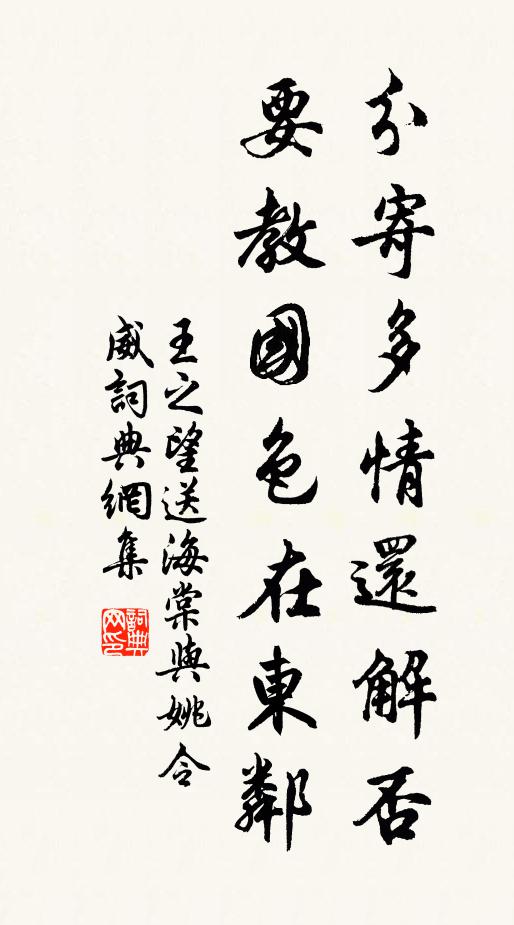 分寄多情還解否
要教國色在東鄰
王之望送海棠與姚令
威詞典網集
詞典
网印